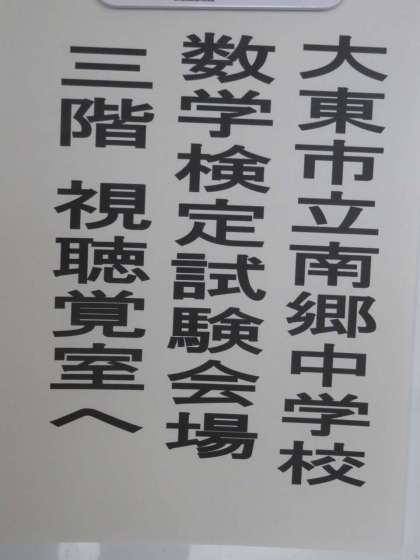 大東市立南郷中学校
数学検定試験会場
三階 視聴覚室へ